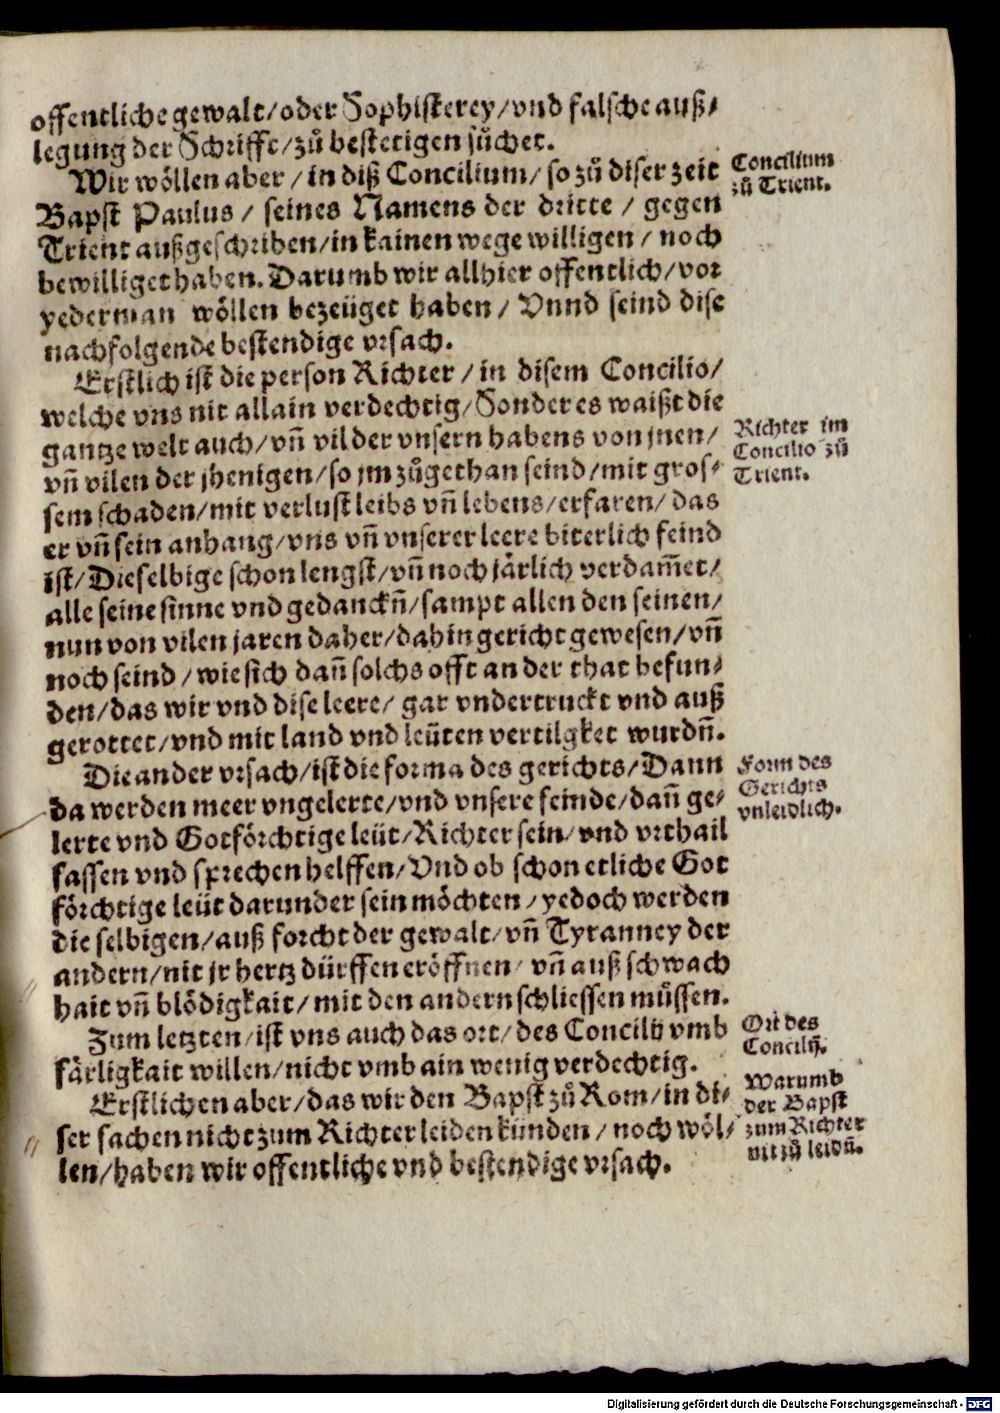 offentliche gewalt/oder Sophisterey/vnd falsche auß⸗
legung der Schrifft/zů bestetigen sůchet.
Wir wöllen aber/in diß Concilium/so zů diser zeit
Bapst Paulus/ seines Namens der dritte/ gegen
Trient außgeschriben/in kainen wege willigen/ noch
bewilliget haben. Darumb wir allhier offentlich/vor
yederman wöllen bezeüget haben/ Vnnd seind dise
nachfolgende bestendige vrsach.
Concilium
zů Trient.
Erstlich ist die person Richter/in disem Concilio/
welche vns nit allain verdechtig/Sonder es waißt die
gantze welt auch/vñ vil der vnsern habens von jnen/
vñ vilen der jhenigen/so jm zůgethan seind/mit gros⸗
sem schaden/mit verlust leibs vñ lebens/erfaren/das
er vñ sein anhang/vns vñ vnserer leere biterlich feind
ist/Dieselbige schon lengst/vñ noch järlich verdam̃et/
alle seine sinne vnd gedanckñ/sampt allen den seinen/
nun von vilen jaren daher/dahin gericht gewesen/vñ
noch seind/wie sich dañ solchs offt an der that befun⸗
den/das wir vnd dise leere/ gar vndertruckt vnd auß
gerottet/vnd mit land vnd leüten vertilgket wurdñ.
Richter im
Concilio zů
Trient.
Die ander vrsach/ist die forma des gerichts/Dann
da werden meer vngelerte/vnd vnsere feinde/dañ ge⸗
lerte vnd Gotförchtige leüt/Richter sein/vnd vrthail
fassen vnd sprechen helffen/Vnd ob schon etliche Got
förchtige leüt darunder sein möchten/yedoch werden
die selbigen/auß forcht der gewalt/vñ Tyranney der
andern/nit jr hertz dürffen eröffnen/ vñ auß schwach
hait vñ blödigkait/mit den andern schliessen müssen.
Form des
Gerichts
vnleidlich.
Zum letzten/ist vns auch das ort/des Concilij vmb
färligkait willen/nicht vmb ain wenig verdechtig.
Ort des
Concilij.
Erstlichen aber/das wir den Bapst zů Rom/in di⸗
ser sachen nicht zum Richter leiden künden/noch wöl⸗
len/haben wir offentliche vnd bestendige vrsach.
Warumb
der Bapst
zum Richter
nit zů leidñ.
Digitalisierung gefördert durch die Deutsche Forschungsgemeinschaft - DFG